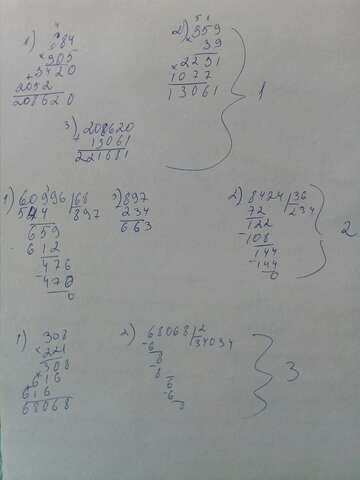 1) 684
× 305
+ 3420
2052
208620
5 1
2) 359
× 39
× 2291
1077
13061
1
3) 208620
+ 13061
221681
1) 60996 | 68
544 | 897
659
612
- 476
- 476
0
3) 897
- 234
663
2) 8424 | 36
72 | 234
122
- 108
144
- 144
0
2
1) 308
× 221
308
616
616
68068
2) 68068 | 2
- 6 | 34034
8
- 8
6
- 6
3